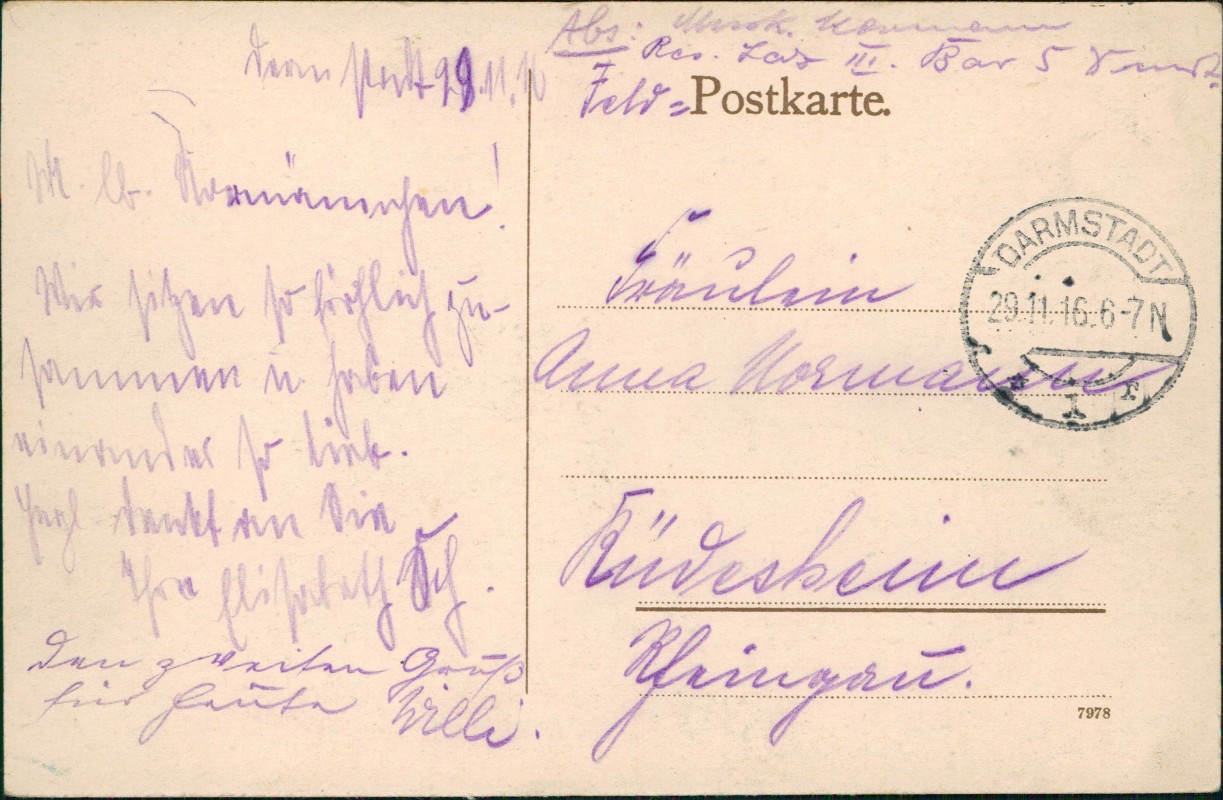 Abs: Musk. Normann
Res. Laz III. Bar 5
Feld=Postkarte.
Darmstadt 29.11.16
M. lb. Normännchen!
Wir sitzen so fröhlich zu-
sammen u. haben
einander so lieb.
Hzgl. denkt an Sie
Ihre Elisabeth Sch.
Den zweiten Gruß
für heute Willi.
Fräulein
Anna Normann
Rüdesheim
Rheingau.
DARMSTADT
29.11.16.6-7N
* 1 r
7978